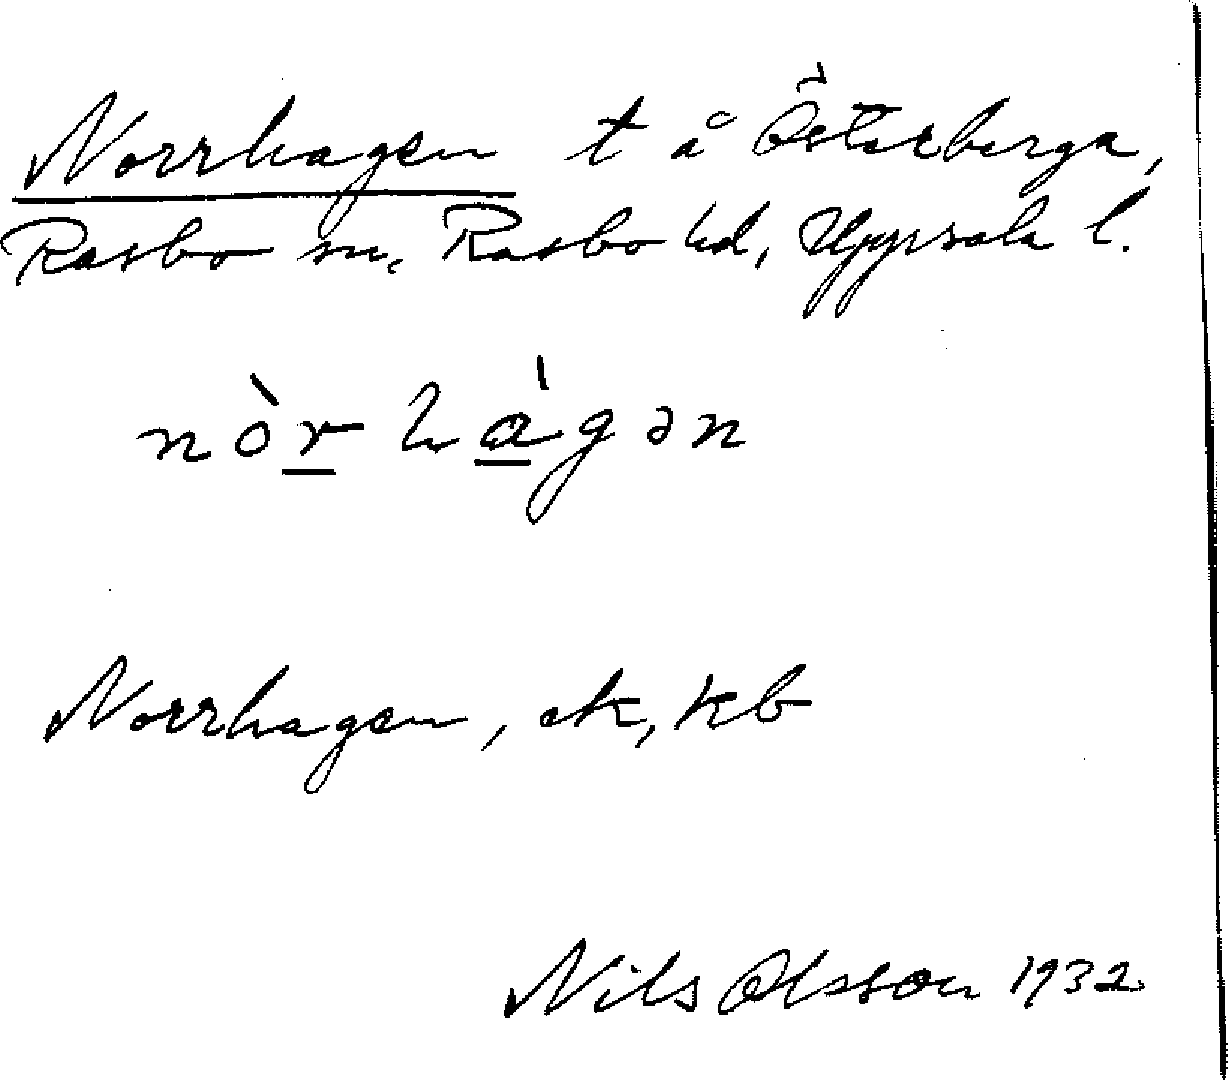 Norrhagen t å Österberga,
Rasbo sn, Rasbo hd, Uppsala l.
nòr hágən
Norrhagen, ek, kb
Nils Olsson 1932